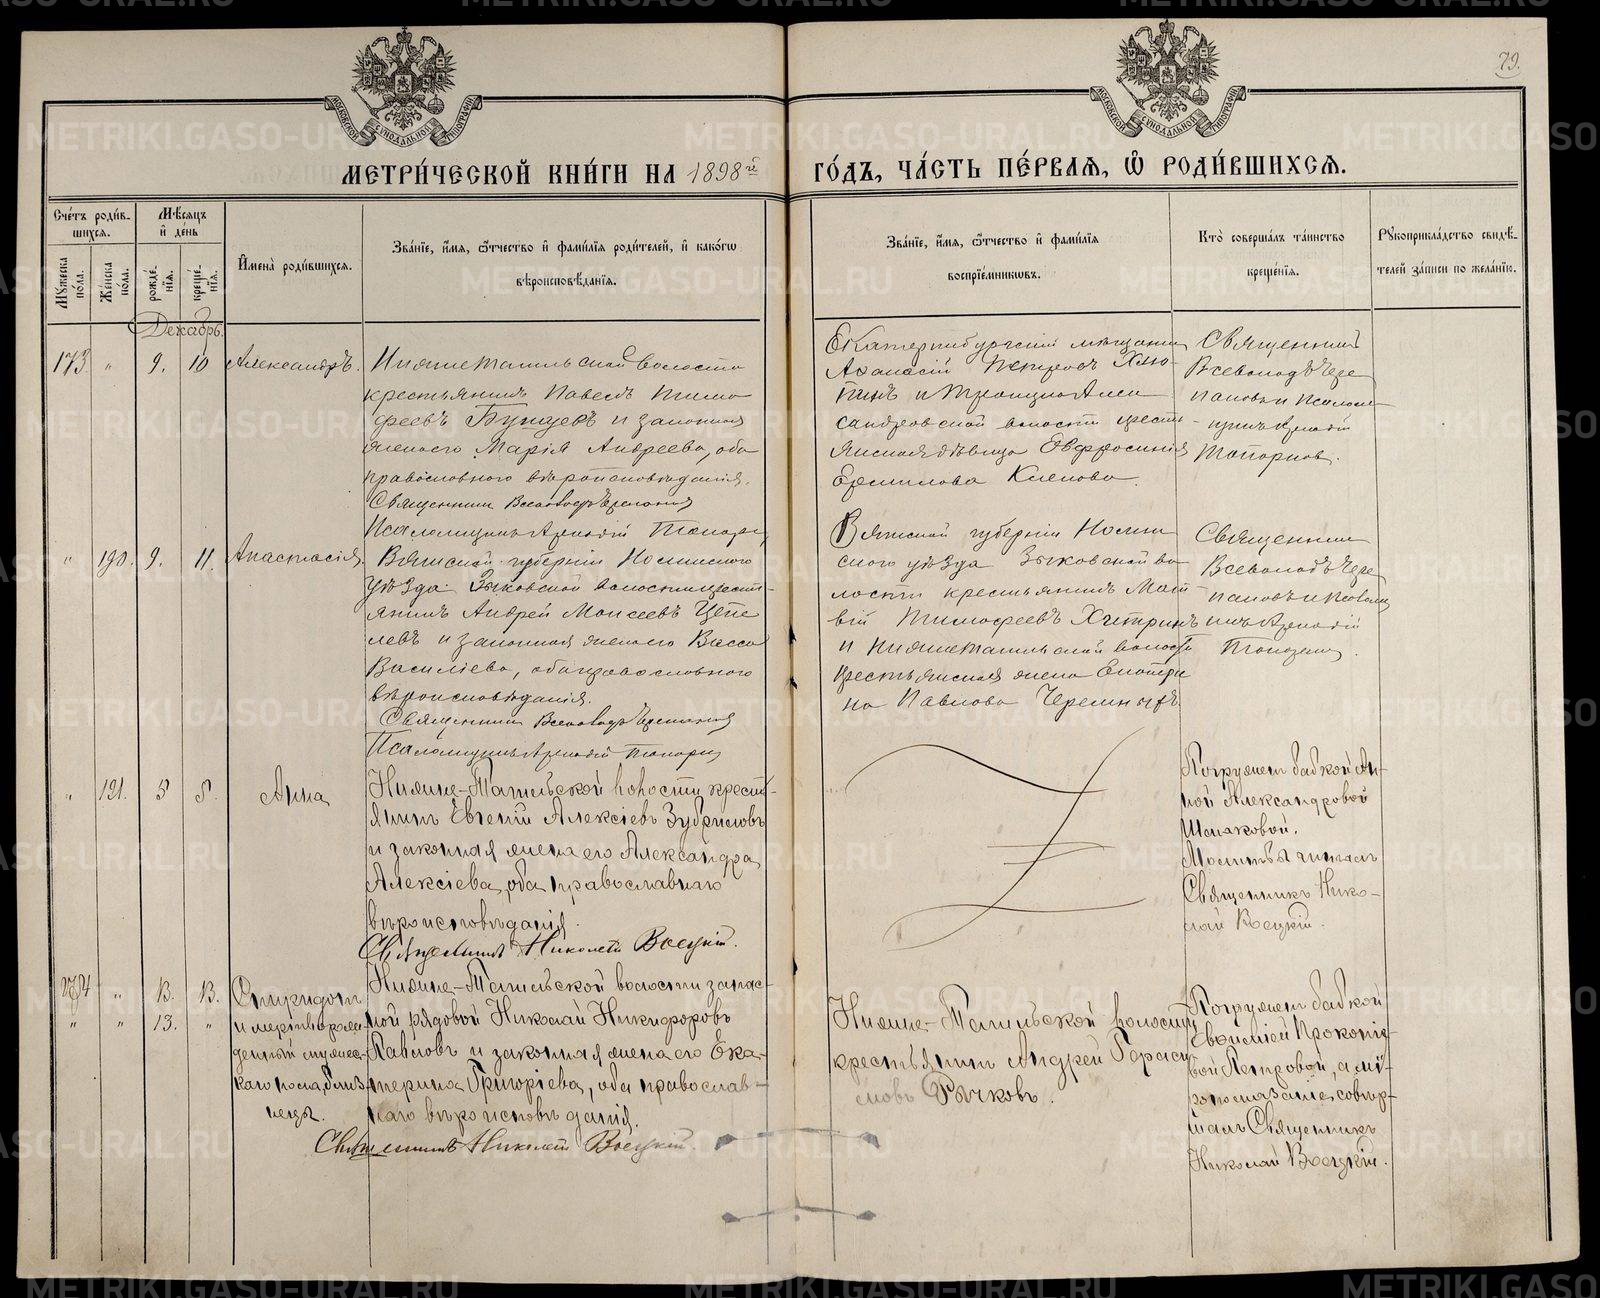 79.
МЕТРИ́ЧЕСКОЙ КНИ́ГИ НА 1898й ГО́ДЪ, ЧА́СТЬ ПЕ́РВАЯ, Ѡ РОДИ́ВШИХСЯ.
Сче́тъ роди́вшихся.
Мѣ́сяцъ и де́нь
Мꙋжеска по́ла.
Же́нска по́ла.
рожде́нїя.
креще́нїя.
И҆мена̀ роди́вшихся.
Зва́нїе, и҆́мя, ѻ҆́тчество и҆ фами́лїя роди́телей, и҆ како́гѡ
вѣроисповѣ́данїя.
Зва́нїе, и҆́мя, ѻ҆́тчество и҆ фами́лїя
воспрїе́мникѡвъ.
Кто̀ соверша́лъ та́инство
креще́нїя.
Рꙋкоприкла́дство свидѣ́-
телей за́писи по жела́нїю.
Декабрь.
173 " 9. 10 Александръ.
Нижнетагильской волости
крестьянинъ Павелъ Тимо
феевъ и законная
жена его Марія Андреева, оба
православного вѣроисповѣданія.
Священникъ Всеволодъ Черепановъ
Псаломщикъ Аркадій Топорк
Екатеринбургскій мѣщанинъ
Аѳанасій Петровъ Хлю-
пинъ и Троицко Алек
сандровской волости кресть-
янская дѣвица Евфросинія
Ермилова
Священникъ
Всеволодъ Чере
пановъ и псалом
щикъ Аркадій
Топорковъ.
" 190. 9. 11. Анастасія
Вятской губерніи Нолинского
уѣзда Зыковской волости крест-
янинъ Андрей Моисеевъ Цепе
левъ и законная жена его Васса
Василіева, оба православного
вѣроисповѣданія.
Священникъ Всеволодъ Черепановъ
Псаломщикъ Аркадій Топорк
Вятской губерніи Нолин
ского уѣзда Зыковской во
лости крестьянинъ Мат
вій Тимофеевъ Хитринъ
и Нижнетагильской волости
крестьянская жена Екатери
на Павлова Черемныхъ
Священникъ
Всеволодъ Чере
пановъ и псаломщ
икъ Аркадій
Топорковъ.
" 191. 5 8. Анна
Нижне-Тагильской волости крестъ-
янинъ Евгеній Алексіевъ Зубриловъ
и законная жена его Александра
Алексіева, оба православнаго
вѣроисповѣданія.
Священникъ Николай Воецкій.
Погружен бабкой Ан-
ной Александровой
Молитвы читалъ
Священникъ Нико-
лай Воецкій.
174 " 13. 13.
" " 13. "
Спиридонъ
и мертворож-
денный мужес-
каго пола, близ-
нецы.
Нижне-Тагильской волости запас-
ной рядовой Николай Никифоровъ
Павловъ и законная жена его Ека-
терина Григоріева, оба православ-
наго вѣроисповѣданія.
Священникъ Николай Воецкій.
Нижне-Тагильской волости
крестьянинъ Андрей Гераси
мовъ Рычковъ.
Погружен бабкой
Евдокіей Прокопіе-
вой Петровой, а мѵ-
ропомазаніе совер-
шалъ Священникъ
Николай Воецкій.